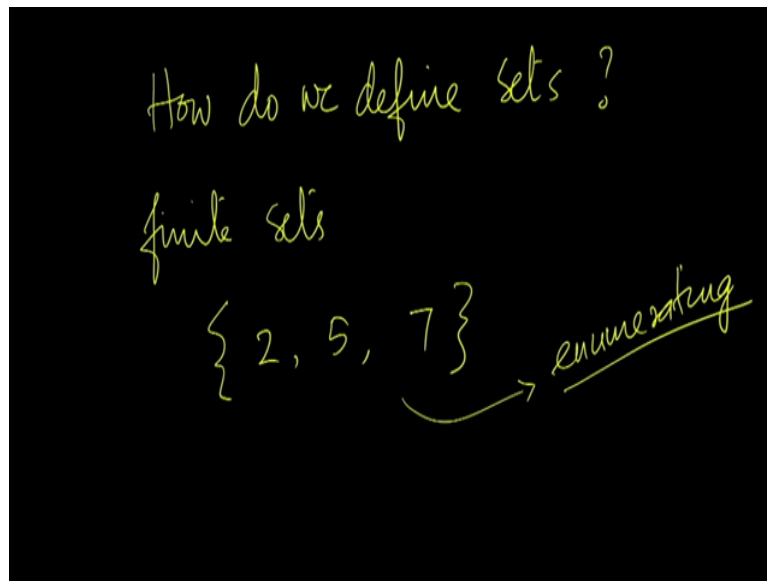 How do we define sets ?
finite sets
{ 2, 5, 7 }
enumerating